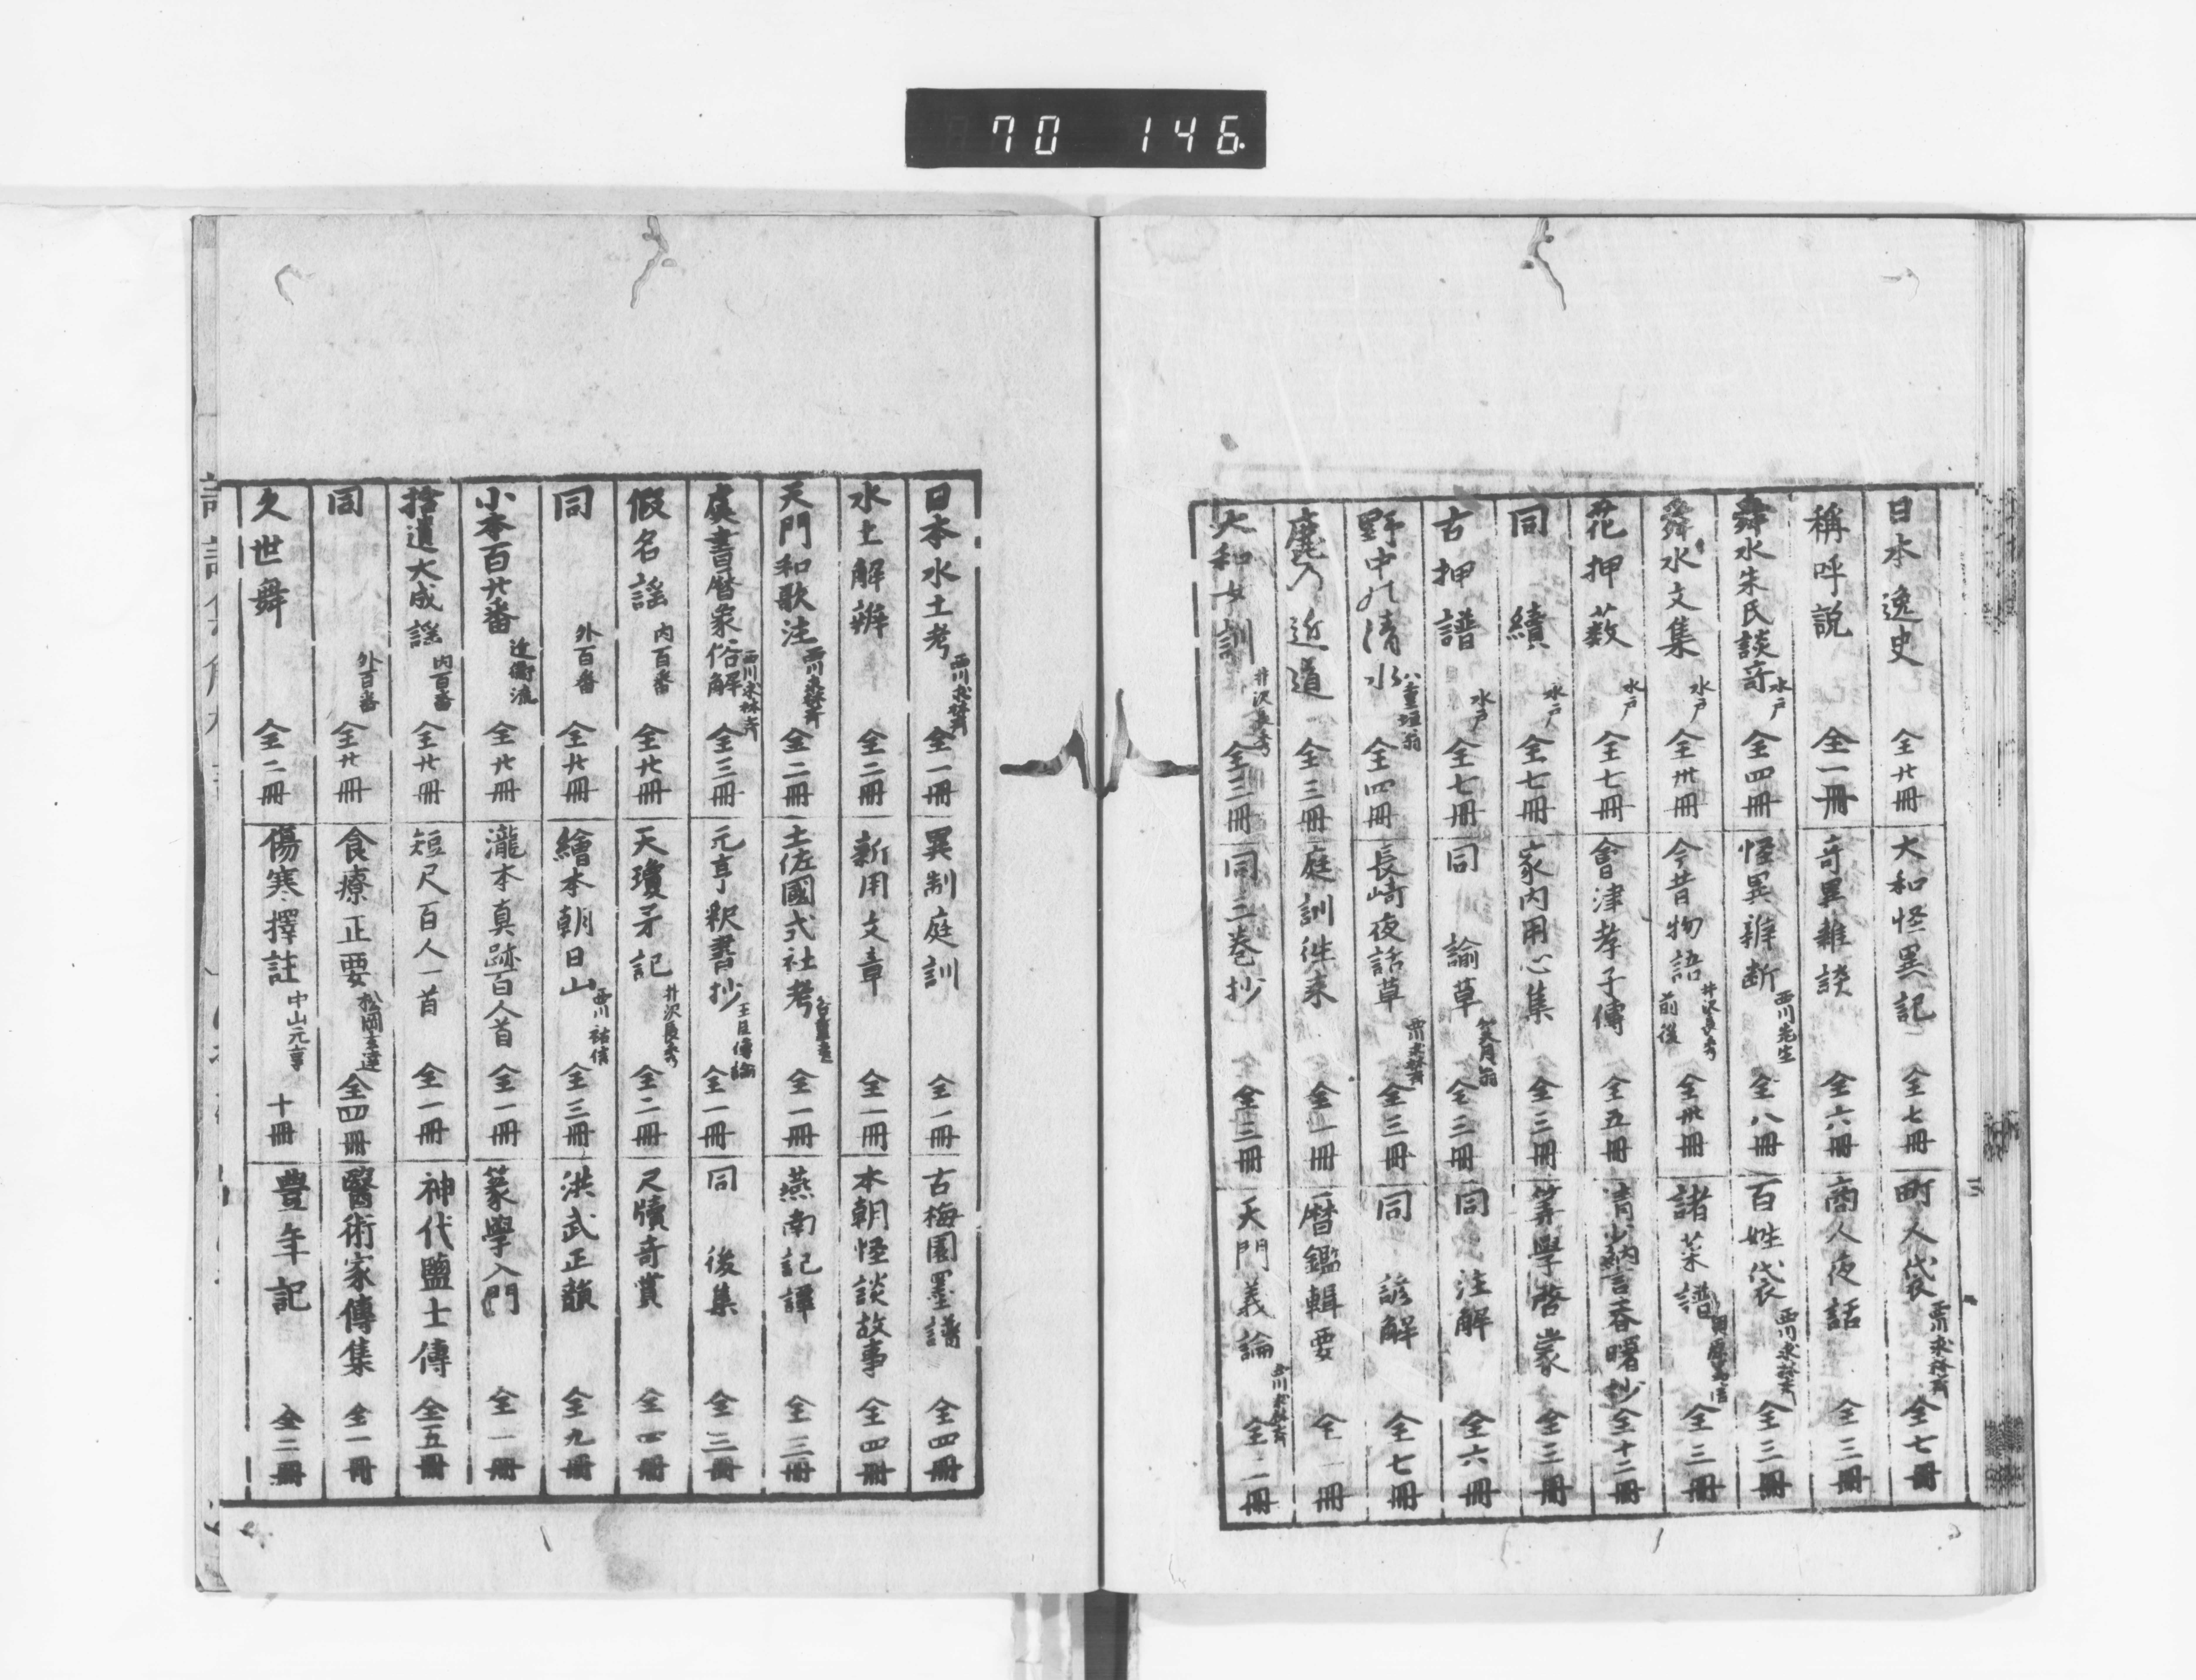 70 146
日本逸史 全廿冊 大和怪異記 全七冊 町人袋 西川求林斎 全七冊
稱呼説 全一冊 奇異雜談 全六冊 商人夜話 全三冊
舜水朱氏談奇 水戸 全四冊 怪異辨断 西川先生 全八冊 百姓袋 西川求林斎 全三冊
舜水文集 水戸 全卅冊 今昔物語 井沢長秀 前後 全卅冊 諸菜譜 貝原篤信 全三冊
花押薮 水戸 全七冊 會津孝子傳 全五冊 清少納言春曙抄 全十二冊
同 續 水戸 全七冊 家内用心集 全三冊 筭學啓蒙 全三冊
古押譜 水戸 全七冊 同 諭草 笑月翁 全三冊 同 注解 全六冊
野中の清水 八重垣翁 全四冊 長崎夜話草 西川求林斎 全三冊 同 諺解 全七冊
麓乃近道 全三冊 庭訓徃来 全一冊 暦鑑輯要 全一冊
大和女訓 井沢長秀 全三冊 同二巻抄 全三冊 天門義論 西川求林斎 全二冊
日本水土考 西川求林斎 全一冊 異制庭訓 全一冊 古梅園墨譜 全四冊
水土解辨 全二冊 新用文章 全一冊 本朝怪談故事 全四冊
天門和歌注 西川求林斎 全二冊 土佐國式社考 谷重遠 全一冊 燕南記譚 全三冊
虞書暦象俗解 西川求林斎 全三冊 元亨釈書抄 全一冊 同 後集 全三冊
假名謡 内百番 全廿冊 天瓊矛記 井沢長秀 全二冊 尺牘奇賞 全四冊
同 外百番 全廿冊 繪本朝日山 西川祐信 全三冊 洪武正韻 全九冊
小本百廿番 近衛流 全廿冊 瀧本真跡百人首 全一冊 篆學入門 全一冊
拾遺大成謡 内百番 全廿冊 短尺百人一首 全一冊 神代鹽土傳 全五冊
同 外百番 全廿冊 食療正要 松岡玄達 全四冊 醫術家傳集 全一冊
久世舞 全二冊 傷寒擇註 中山元亨 十冊 豊年記 全二冊